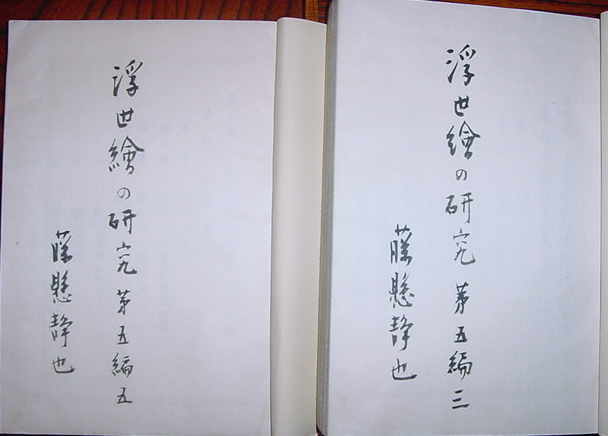 浮世繪の研究 第五編五
藤懸静也
浮世繪の研究 第五編三
藤懸静也